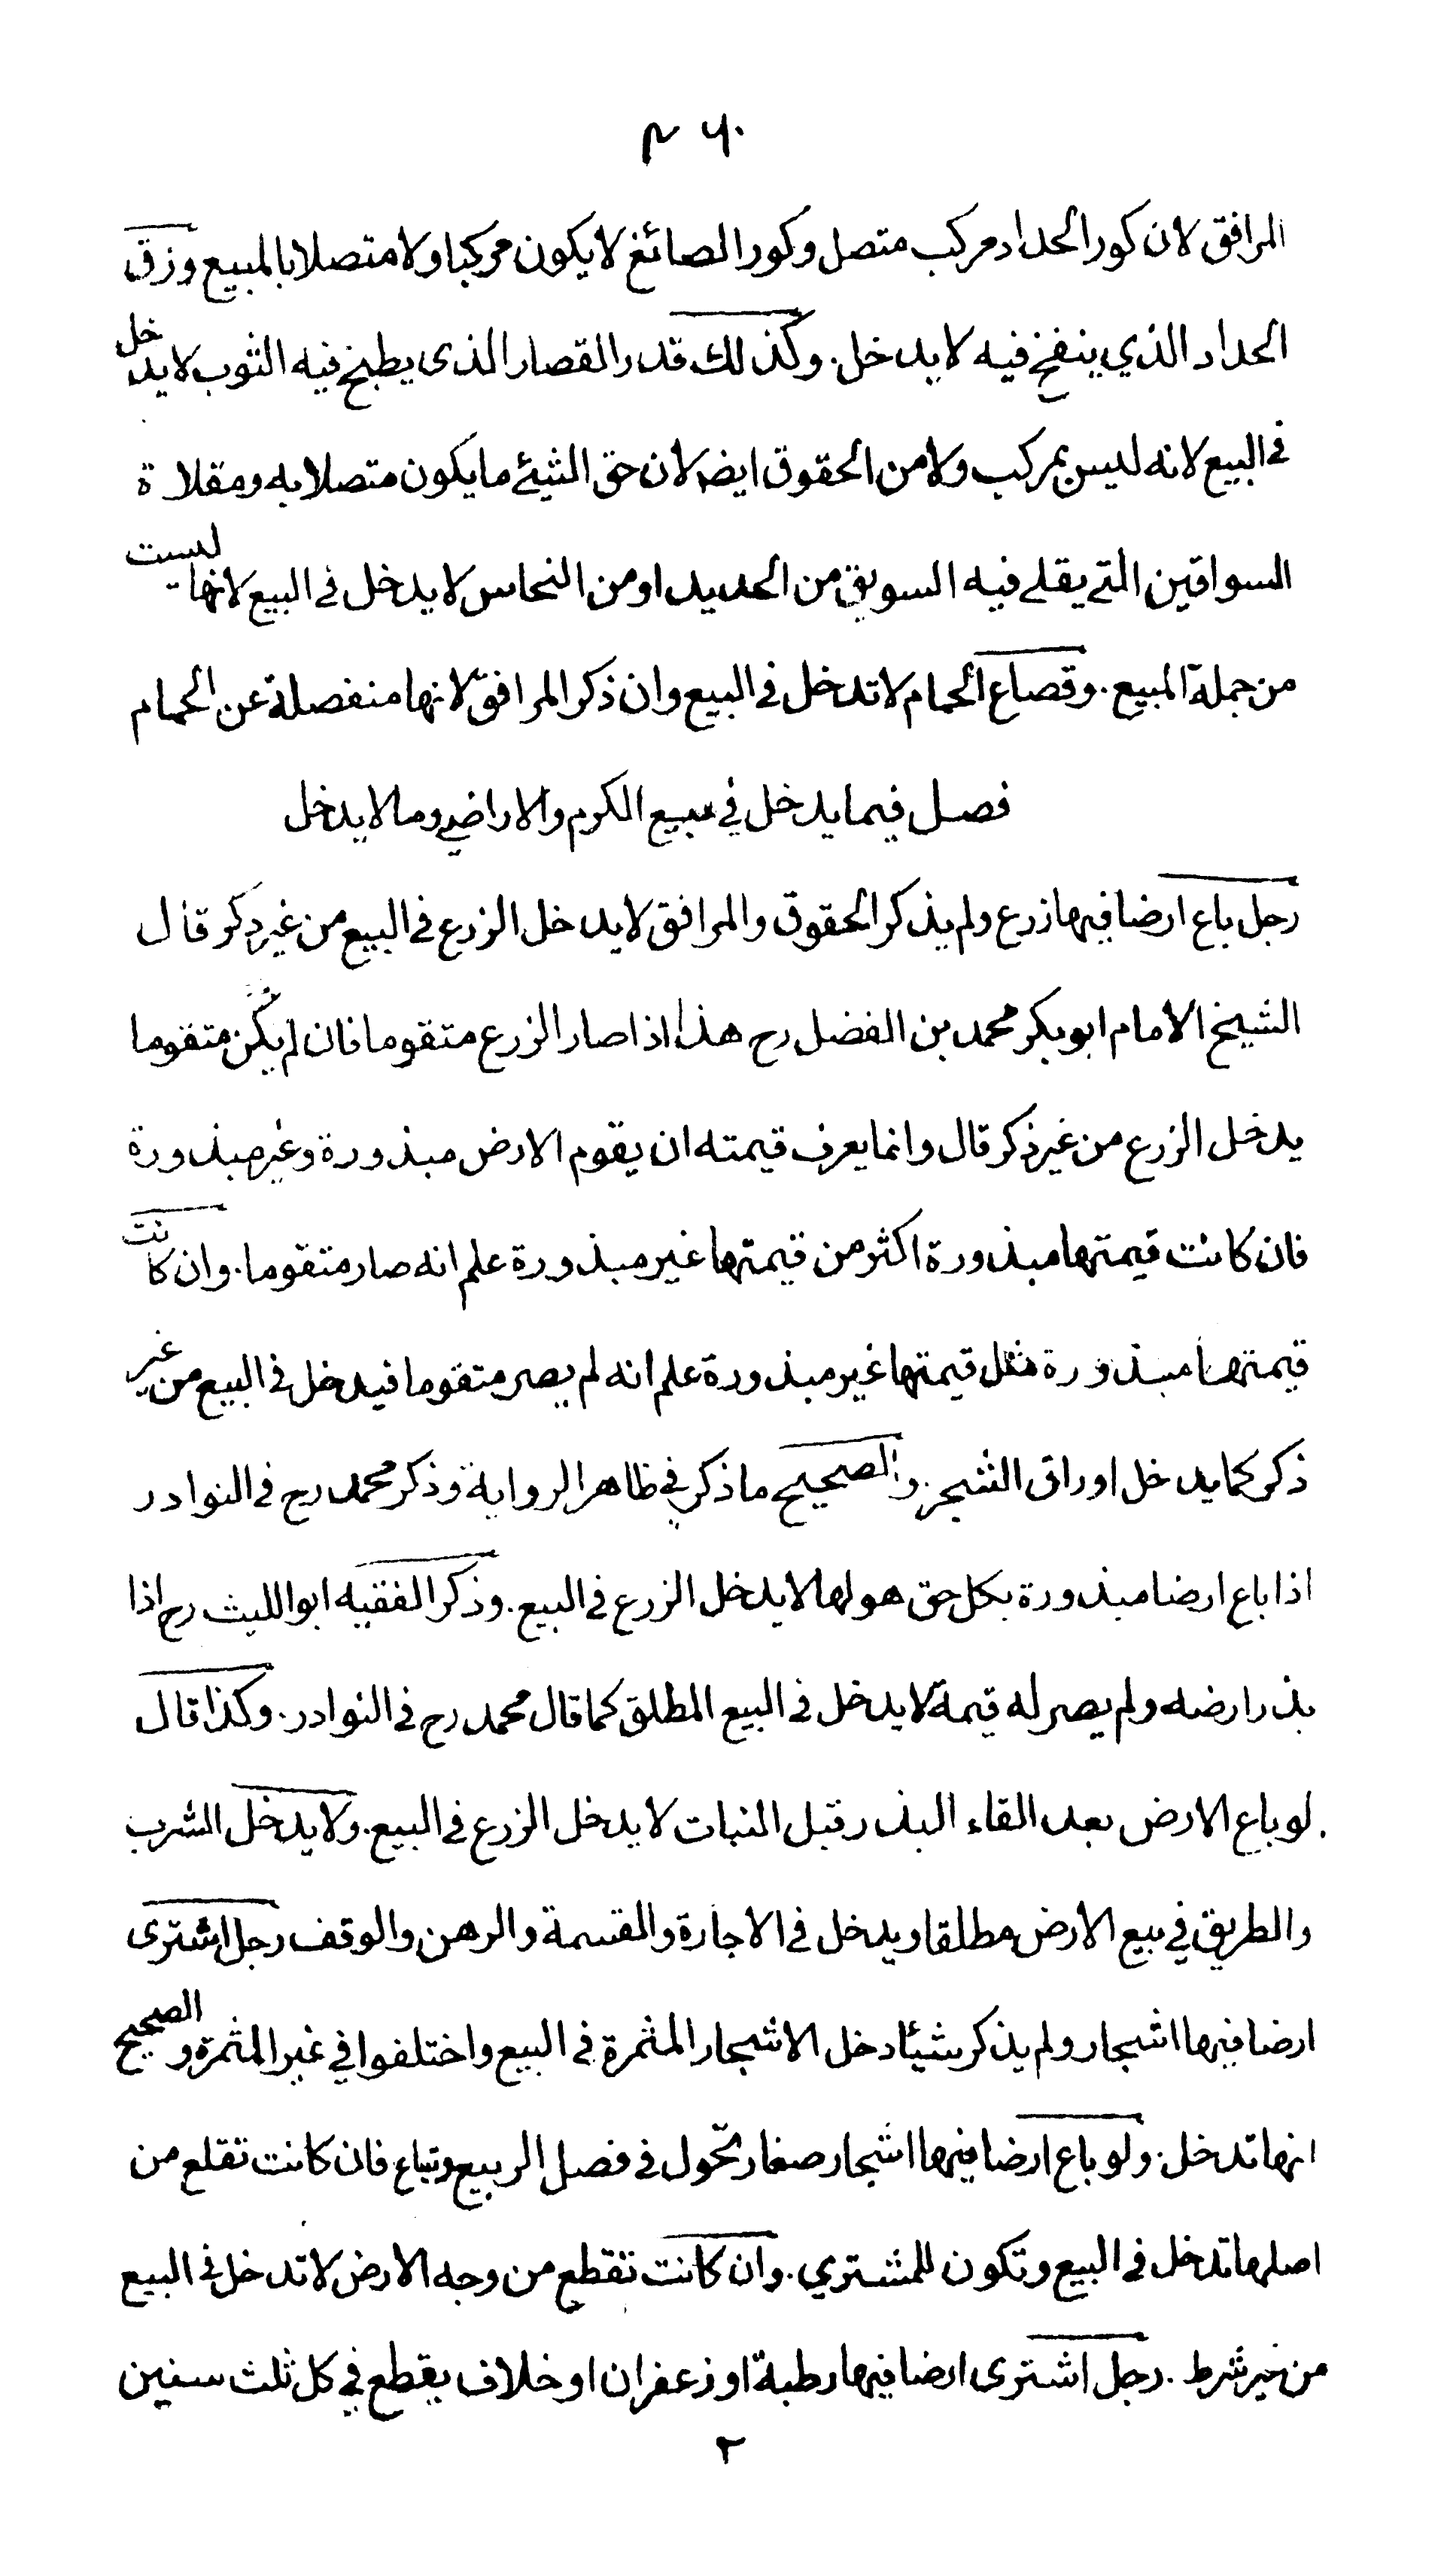 المرافق لان كور الحداد مركب متصل وكور الصائغ لا يكون مركبا ولا متصلا بالمبيع وزق
الحداد الذي ينفخ فيه لا يدخل. وكذلك قدر القصار الذى يطبخ فيه الثوب لا يدخل
فى البيع لانه ليس بمركب ولا من الحقوق ايضا لان حق الشيئ ما يكون متصلا به ومقلاة
السواقين التى يقلى فيه السويق من الحديد او من النحاس لا يدخل فى البيع لانها ليست
من جملة المبيع. وقصاع الحمام لا تدخل فى البيع وان ذكر المرافق لانها منفصلة عن الحمام
فصل فيما يدخل في مبيع الكرم والاراضي وما لا يدخل
رجل باع ارضا فيها زرع ولم يذكر الحقوق والمرافق لا يدخل الزرع فى البيع من غير ذكر قال
الشيخ الامام ابو بكر محمد بن الفضل رح هذا اذا صار الزرع متقوما فان لم يكن متقوما
يدخل الزرع من غير ذكر قال وانما يعرف قيمته ان يقوم الارض مبذورة وغير مبذورة
فان كانت قيمتها مبذورة اكثر من قيمتها غير مبذورة علم انه صار متقوما. وان كانت
قيمتها مبذورة مثل قيمتها غير مبذورة علم انه لم يصر متقوما فيدخل فى البيع من غير
ذكر كما يدخل اوراق الشجر. والصحيح ما ذكر في ظاهر الرواية وذكر محمد رح فى النوادر
اذا باع ارضا مبذورة بكل حق هو لها لا يدخل الزرع فى البيع. وذكر الفقيه ابو الليث رح اذا
بذر ارضه ولم يصر له قيمة لا يدخل فى البيع المطلق كما قال محمد رح فى النوادر. وكذا قال
لو باع الارض بعد القاء البذر قبل النبات لا يدخل الزرع فى البيع. ولا يدخل الشرب
والطريق في بيع الارض مطلقا ويدخل فى الاجارة والقسمة والرهن والوقف رجل اشترى
ارضا فيها اشجار ولم يذكر شيئا دخل الاشجار المثمرة فى البيع واختلفوا في غير المثمرة والصحيح
انها تدخل. ولو باع ارضا فيها اشجار صغار تحول فى فصل الربيع وتباع فان كانت تقلع من
اصلها تدخل فى البيع وتكون للمشتري. وان كانت تقطع من وجه الارض لا تدخل فى البيع
من غير شرط. رجل اشترى ارضا فيها رطبة او زعفران او خلاف يقطع في كل ثلث سنين
٢